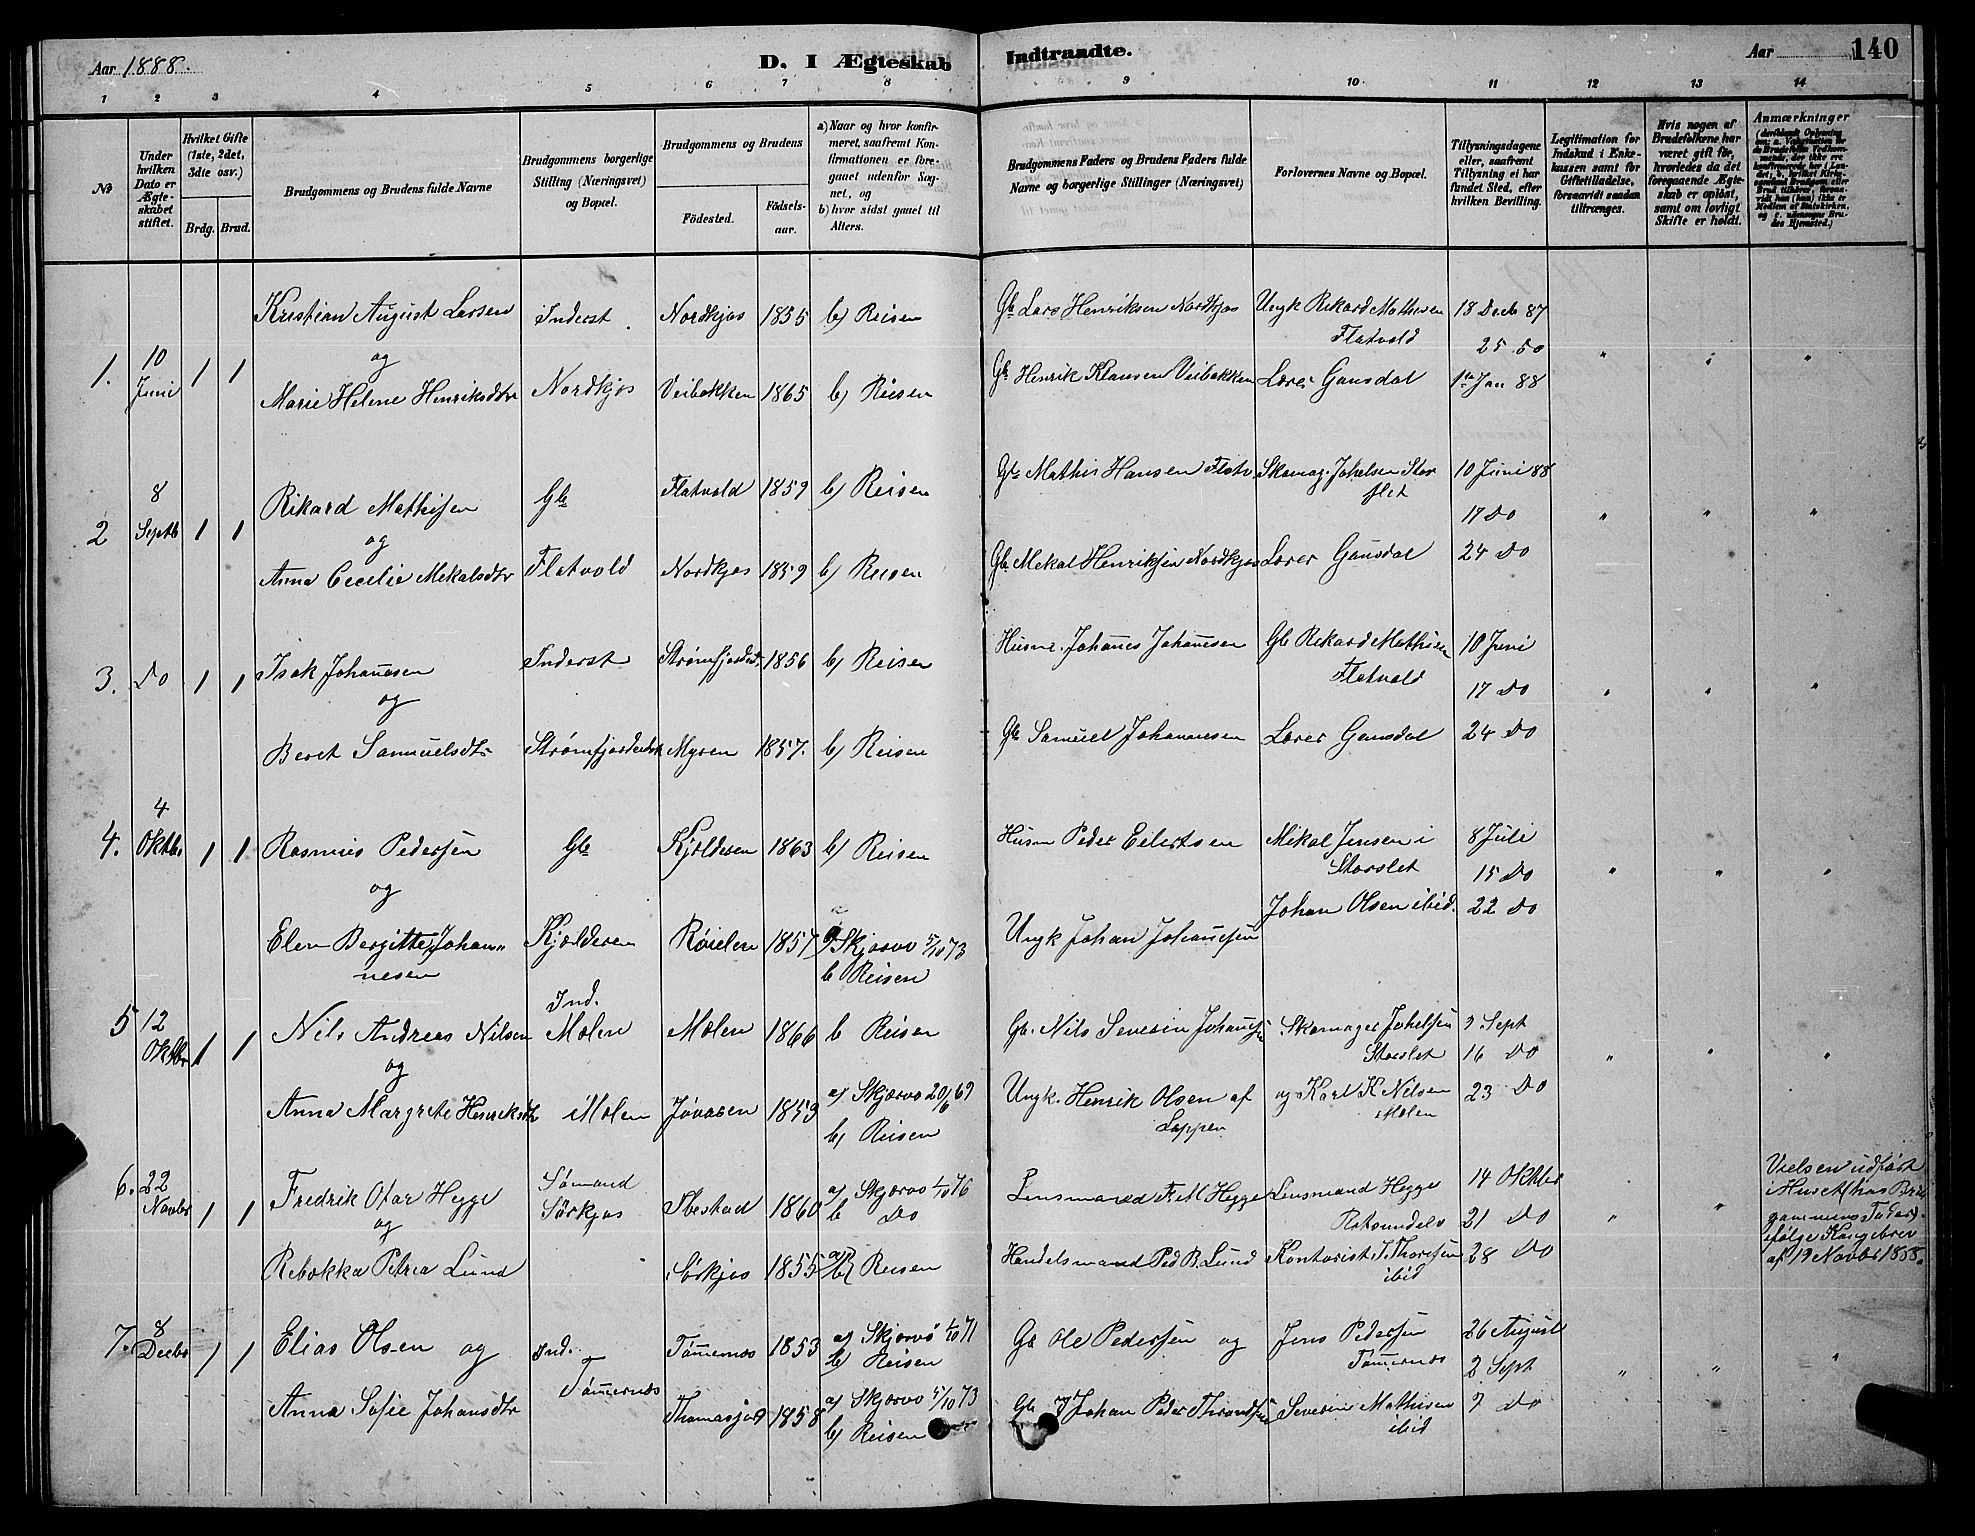 Aar 1888. D. I Ægteskab Indtraadte. Aar 140
1 2 3 4 5 6 7 8 9 10 11 12 13 14
No
Under hvilken Dato er Ægteskabet stiftet.
Hvilket Gifte (1ste, 2det, 3die osv.)
Brdg. Brud.
Brudgommens og Brudens fulde Navne
Brudgommens borgerlige Stilling (Næringsvei) og Bopæl.
Brudgommens og Brudens
Fødested.
Fødselsaar.
a) Naar og hvor konfirmeret, saafremt Konfirmationen er foregaaet udenfor Sognet, og
b) hvor sidst gaaet til Alters.
Brudgommens Faders og Brudens Faders fulde Navne og borgerlige Stillinger (Næringsvei)
Forlovernes Navne og Bopæl.
Tillysningsdagene eller, saafremt Tillysning ei har fundet Sted, efter hvilken Bevilling.
Legitimation for Indskud i Enkekassen samt for Giftetilladelse, forsaavidt saadan tiltrænges.
Hvis nogen af Brudefolkene har været gift før, hvorledes da det foregaaende Ægteskab er opløst, samt om lovligt Skifte er holdt.
Anmærkninger
1. 10 Juni 1 1
Kristian August Larsen Inderst Nordkjos 1855 b) Reisen Gb Lars Henriksen Nordkjos Ungk Rikard Mathisen Flatvold 18 Decb 87
og 25 Do
Marie Helene Henriksdtr Nordkjos Veibakken 1865 b) Reisen Gb Henrik Klausen Veibakken Lærer Gausdal 1ste Jan 88
2 8 Septb 1 1
Rikard Mathisen Gb Flatvold 1859 b) Reisen Gb Mathis Hansen Flatv Skomag. Johelsen Storslet 10 Juni 88
og 17 Do
Anna Cecelie Mekalsdtr Flatvold Nordkjos 1859 b) Reisen Gb Mekal Henriksen Nordkjos Lærer Gausdal 24 Do
3. Do 1 1
Isak Johannesen Inderst Strømfjordeidt 1856 b) Reisen Husm. Johanes Johannesen Gb Rikard Mathisen Flatvold 10 Juni
og 17 Do
Beret Samuelsdtr Strømfjordeidet Myren 1857. b) Reisen Gb Samuel Johannesen Lærer Gausdal 24 Do
4. 4 Oktbr 1 1
Rasmus Pedersen Gb Kjelderen 1863 b) Reisen Husm Peder Eilertsen Mikal Jensen i Storslet 8 Juli
og 15 Do
Elen Bergitte Johannesen Kjelderen Røielen 1857 a) Skjærvø 5/10 73 b Reisen Ungk Johan Johannesen Johan Olsen ibid. 22 Do
5 12 Oktbr 1 1
Nils Andreas Nilsen Ind. Molen Molen 1866 b Reisen Gb. Nils Severin Johansen Skomager Johelsen Storslet 9 Sept
og 16 Do
Anna Margrete Henriksdtr i Molen Jøvasen 1853 a) Skjærvø 20/6 69 b) Reisen Ungk. Henrik Olsen af Lappen og Karl K Nilsen Molen 23 Do
6. 22 Novbr 1 1
Fredrik Otar Hegge Sømand Sørkjos Ibestad 1860 a) Skjærvø 1/10 76 b Do Lensmand Fr. M Hegge Lensmand Hegge Rotsundelv 14 Oktbr
og 21 Do
Rebekka Petrea Lund Sørkjos 1855 a) b) Reisen Handelsmand Ped B. Lund Kontorist J. Thoresen ibid 28 Do
Vielsen udført i Huset (hos Brudgommens Fader) ifølge Kongebrev af 19 Novbr 1888.
7. 8 Decbr 1 1
Elias Olsen og Ind. Tømernes 1853 a) Skjærvø 1/10 71 b) Reisen Gb Ole Pedersen og Jens Pedersen Tømernes 26 August
2 Sept
Anna Sofie Johansdtr Tømernes Thomasjord 1858 a) Skjærvø 5/10 73 b) Reisen Gb Johan Peder Thrandsen Severin Mathisen ibid 9 Do